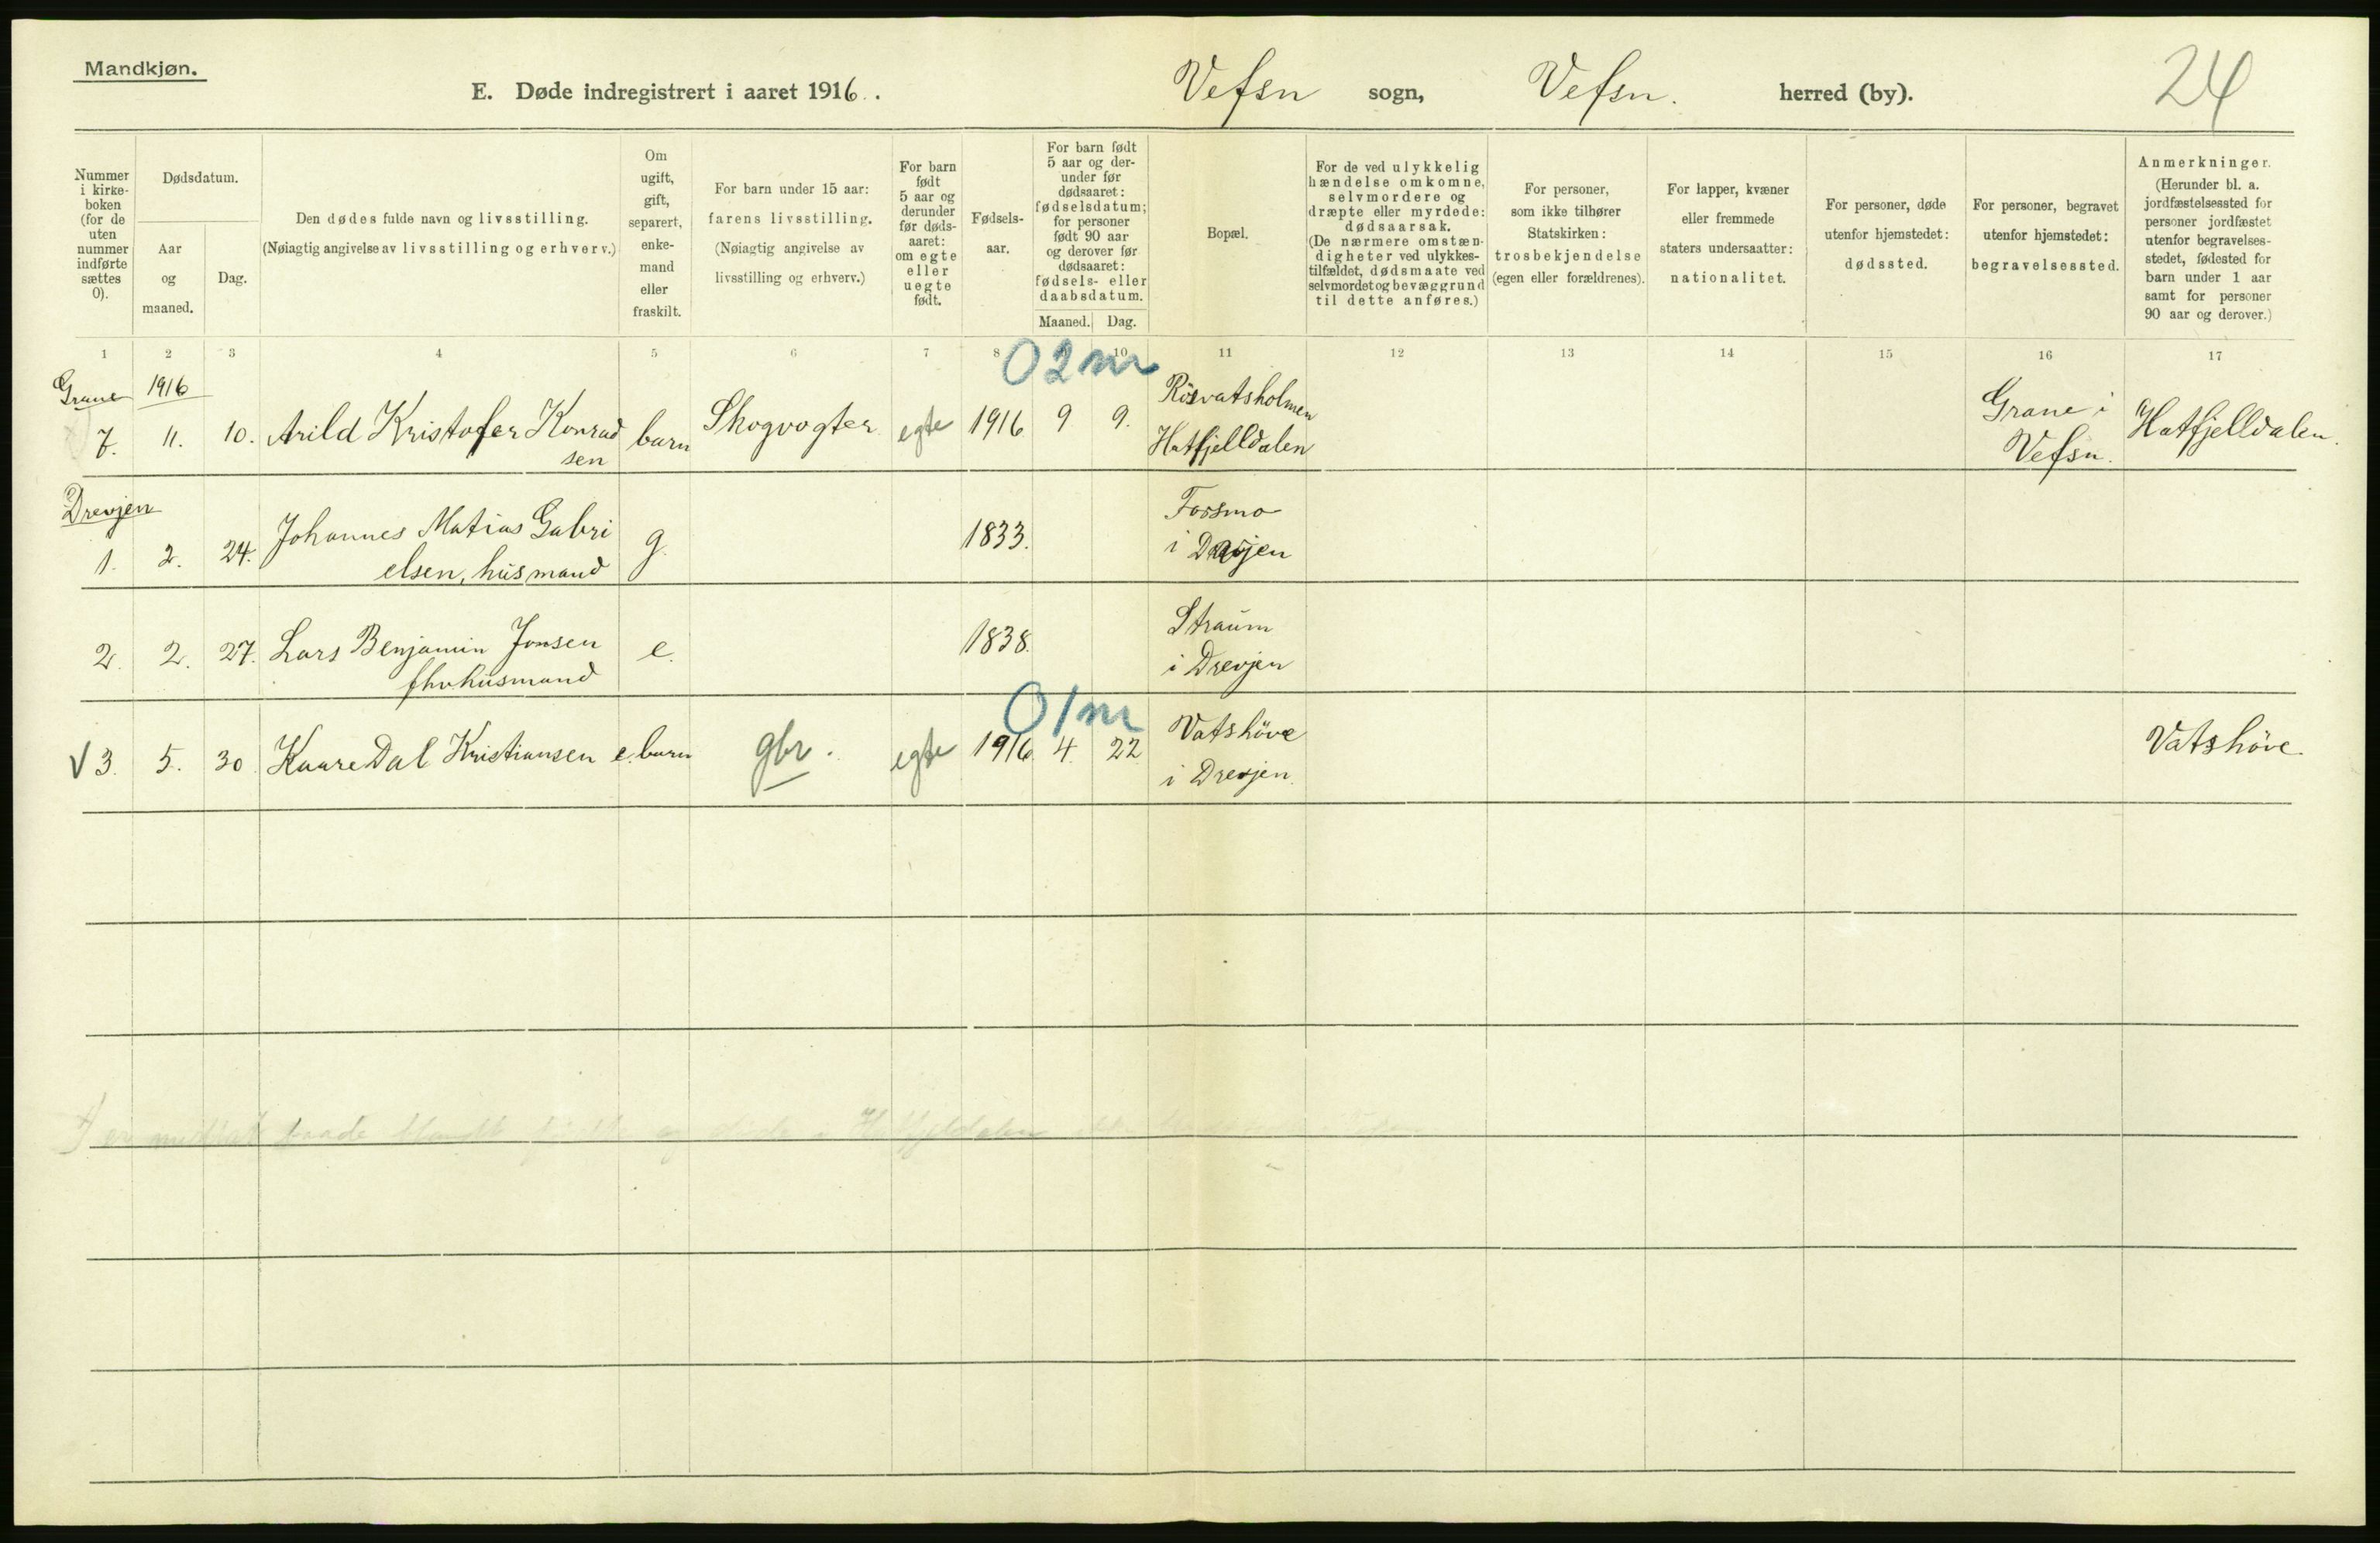 Mandkjøn.
E. Døde indregistrert i aaret 1916. Vefsn sogn, Vefsn. herred (by).
24
Nummer
i kirke-
boken
(for de
uten
nummer
indførte
sættes
0).
Dødsdatum.
Aar
og
maaned.
Dag.
Den dødes fulde navn og livsstilling.
(Nøiagtig angivelse av livsstilling og erhverv.)
Om
ugift,
gift,
separert,
enke-
mand
eller
fraskilt.
For barn under 15 aar:
farens livsstilling.
(Nøiagtig angivelse av
livsstilling og erhverv.)
For barn
født
5 aar og
derunder
før døds-
aaret:
om egte
eller
uegte
født.
Fødsels-
aar.
For barn født
5 aar og der-
under før
dødsaaret:
fødselsdatum;
for personer
født 90 aar
og derover før
dødsaaret:
fødsels- eller
daabsdatum.
Maaned. Dag.
Bopæl.
For de ved ulykkelig
hændelse omkomne,
selvmordere og
dræpte eller myrdede:
dødsaarsak.
(De nærmere omstæn-
digheter ved ulykkes-
tilfældet, dødsmaate ved
selvmordet og bevæggrund
til dette anføres.)
For personer,
som ikke tilhører
Statskirken:
trosbekjendelse
(egen eller forældrenes).
For lapper, kvæner
eller fremmede
staters undersaatter:
nationalitet.
For personer, døde
utenfor hjemstedet:
dødssted.
For personer, begravet
utenfor hjemstedet:
begravelsessted.
Anmerkninger.
(Herunder bl. a.
jordfæstelsessted for
personer jordfæstet
utenfor begravelses-
stedet, fødested for
barn under 1 aar
samt for personer
90 aar og derover.)
1 2 3 4 5 6 7 8 10 11 12 13 14 15 16 17
02 m
Grane 1916
7. 11. 10. Arild Kristofer Konrad
sen
barn Skogvogter egte 1916 9 9.
Rösvatsholmen
Hatfjelldalen
Grane i
Vefsn.
Hatfjelldalen.
Drevjen
1. 2. 24. Johannes Matias Gabri
elsen, husmand
g. 1833.
Forsmo
i Drevjen
2. 2. 27. Lars Benjamin Jonsen
fhvhusmand
e. 1838.
Straum
i Drevjen
01 m
√ 3. 5. 30 Kaare Dal Kristiansen e. barn gbr. egte 1916 4. 22
Vatshöve
i Drevjen.
Vatshöve.